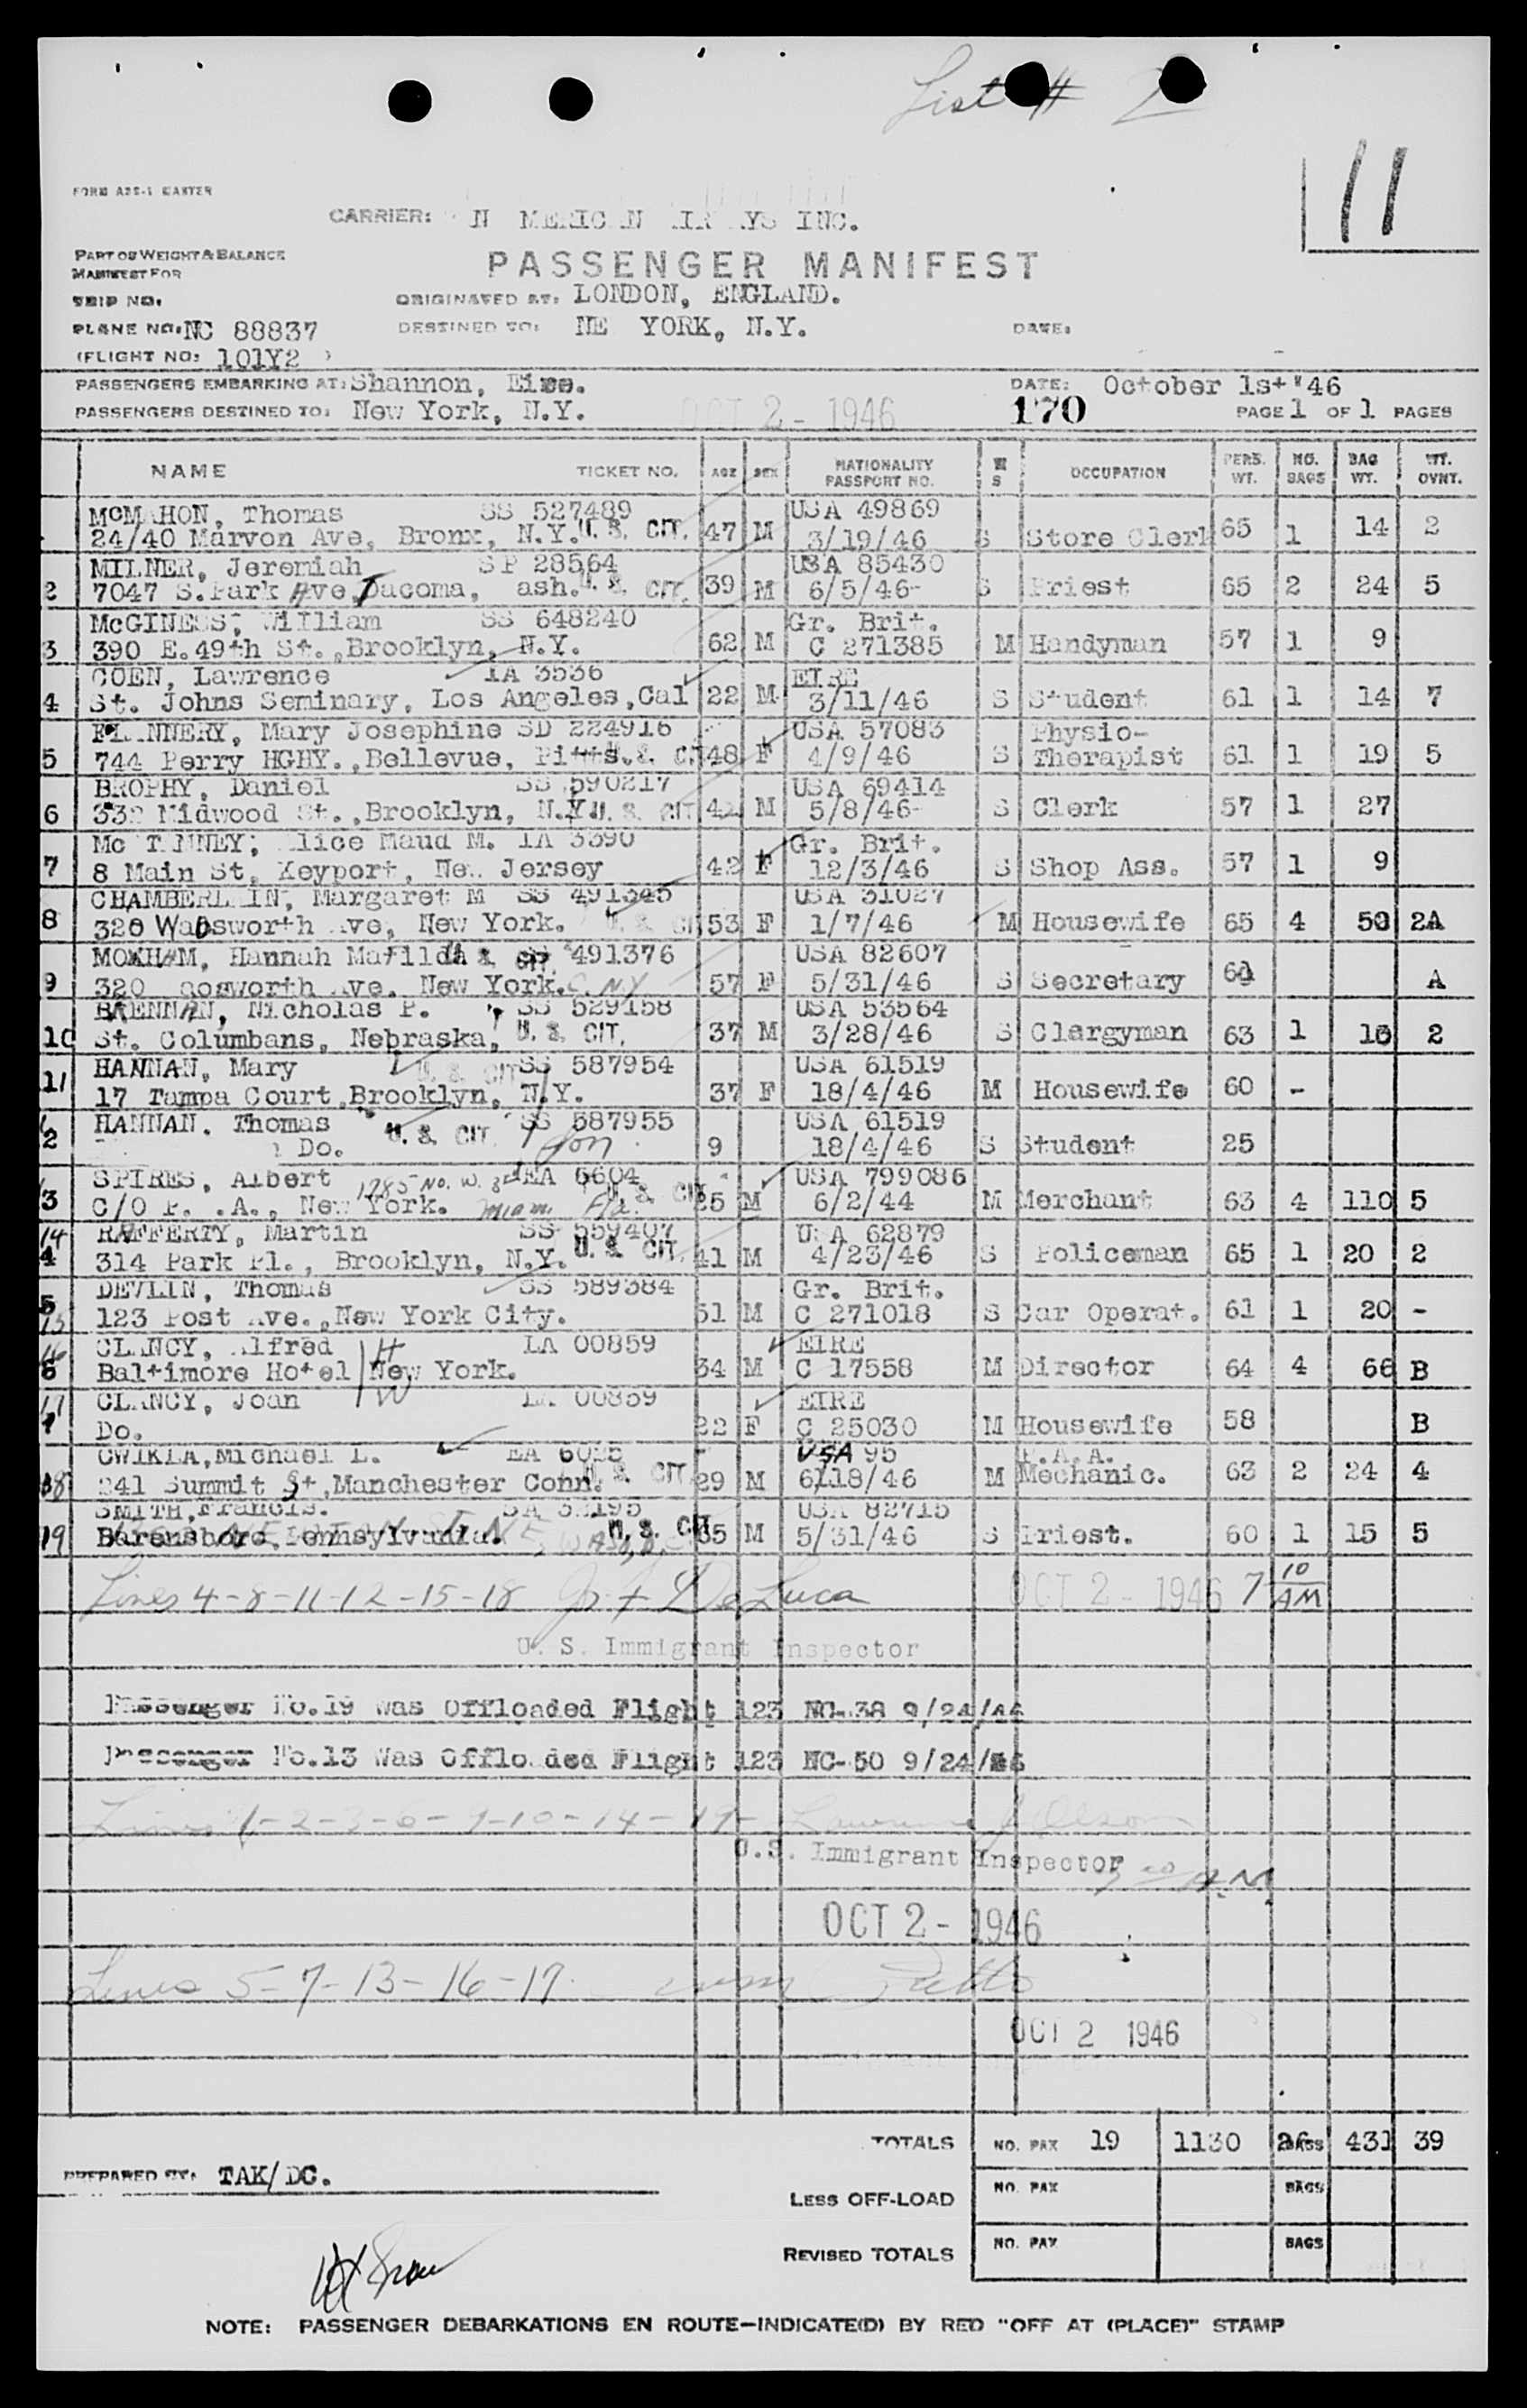 List # 2
11
FORM ADS-1 MASTER
CARRIER: N MERIC N IR YS INC.
PART OF WEIGHT & BALANCE
MANIFEST FOR
PASSENGER MANIFEST
TRIP NO.
ORIGINATED AT: LONDON, ENGLAND.
PLANE NO: NC 88837
DESTINED TO: NE YORK, N.Y.
DATE:
(FLIGHT NO: 101Y2 )
PASSENGERS EMBARKING AT: Shannon, Eire.
DATE: October 1st '46
PASSENGERS DESTINED TO: New York, N.Y.
OCT 2 - 1946
170
PAGE 1 OF 1 PAGES
NAME TICKET NO. AGE SEX NATIONALITY PASSPORT NO. M S OCCUPATION PERS. WT. NO. BAGS BAG WT. WT. OVWT.
McMAHON, Thomas SS 527489 USA 49869
24/40 Marvon Ave, Bronx, N.Y. U.S. CIT. 47 M 3/19/46 S Store Clerk 65 1 14 2
MILNER, Jeremiah SP 28564 USA 85430
2 7047 S. Park Ave, Tacoma, ash. U.S. CIT. 39 M 6/5/46- S Priest 65 2 24 5
McGINESS, William SS 648240 Gr. Brit.
3 390 E.49th St., Brooklyn, N.Y. 62 M C 271385 M Handyman 57 1 9
COEN, Lawrence IA 3536 EIRE
4 St. Johns Seminary, Los Angeles, Cal 22 M 3/11/46 S Student 61 1 14 7
FLANNERY, Mary Josephine SD 224916 USA 57083 Physio-
5 744 Perry HGHY., Bellevue, Pitts. U.S. CIT 48 F 4/9/46 S Therapist 61 1 19 5
BROPHY, Daniel SS 590217 USA 69414
6 332 Midwood St., Brooklyn, N.Y. U.S. CIT 42 M 5/8/46- S Clerk 57 1 27
Mc T NNEY, lice Maud M. IA 3390 Gr. Brit.
7 8 Main St, Keyport, New Jersey 42 F 12/3/46 S Shop Ass. 57 1 9
CHAMBERL IN, Margaret M SS 491345 USA 31027
8 320 Wadsworth ve, New York. U.S. CIT 53 F 1/7/46 M Housewife 65 4 50 2A
MOXHAM, Hannah Matilda U.S. CIT. 491376 USA 82607
9 320 osworth ve. New York. C. N.Y 57 F 5/31/46 S Secretary 60 A
BRENNAN, Nicholas P. SS 529158 USA 53564
10 St. Columbans, Nebraska, U.S. CIT. 37 M 3/28/46 S Clergyman 63 1 10 2
HANNAN, Mary U.S. CIT SS 587954 USA 61519
11 17 Tampa Court, Brooklyn, N.Y. 37 F 18/4/46 M Housewife 60 -
HANNAN. Thomas U.S. CIT. SS 587955 USA 61519
2 Do. Son 9 18/4/46 S Student 25
SPIRES, Albert 1785 No. W. 3rd EA 6604 USA 799086
3 C/O P. .A., New York. Miami Fla. U.S. CIT 35 M 6/2/44 M Merchant 63 4 110 5
14 RAFFERTY, Martin SS 559407 U A 62879
4 314 Park Pl., Brooklyn, N.Y. U.S. CIT. 41 M 4/23/46 S Policeman 65 1 20 2
DEVLIN, Thomas SS 589384 Gr. Brit.
15 123 Post Ave., New York City. 51 M C 271018 S Car Operat. 61 1 20 -
16 CL NCY, lfred H LA 00859 EIRE
6 Baltimore Hotel New York. W 34 M C 17558 M Director 64 4 66 B
17 CLANCY, Joan LA 00859 EIRE
Do. 22 F C 25030 M Housewife 58 B
CWIKLA, Michael L. EA 6025 USA 95 P.A.A.
18 241 Summit St, Manchester Conn. U.S. CIT 29 M 6/18/46 M Mechanic. 63 2 24 4
SMITH, Francis. USA 82715
19 Barensboro, Pennsylvania. U.S. CIT 35 M 5/31/46 S Priest. 60 1 15 5
Lines 4-8-11-12-15-18 De Luca OCT 2 - 1946 7 10 AM
U. S. Immigrant Inspector
Passenger No.19 Was Offloaded Flight 123 NC-38 9/24/46
Passenger No.13 Was Offlo ded Flight 123 NC-50 9/24/46
Lines 1-2-3-6-9-10-14-19- Olson
U.S. Immigrant Inspector AM
OCT 2 - 1946
Lines 5-7-13-16-17
OCT 2 1946
TOTALS NO. PAX 19 1130 26 BAGS 431 39
PREPARED BY: TAK/DC.
LESS OFF-LOAD NO. PAX BAGS
REVISED TOTALS NO. PAX BAGS
NOTE: PASSENGER DEBARKATIONS EN ROUTE—INDICATE(D) BY RED "OFF AT (PLACE)" STAMP